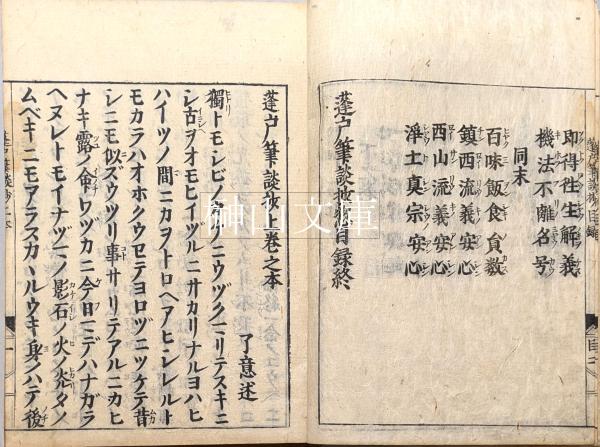 即得往生解義
機法不離名号
同末
百味飯食員数
鎮西流義安心
西山流義安心
浄土真宗安心
蓬戸筆談抜惣目録終
蓬戸筆談抜上巻之本
了意述
獨トモシビノ
シ古ヲオモヒイヅルニサカリナルヨハヒ
ハイツノ間ニカヲトロヘアヒシレルト
モカラハオホクウセテヨロヅニツケテ昔
シニモ似ズウツリ事サリテアルニカヒ
ナキ露ノ命ワヅカニ今日ニデハナガラ
ヘヌレトモイナヅマノ影石ノ火ノ
ムベキニモアラスカヽルウキ身ノハテ後
榊山文庫